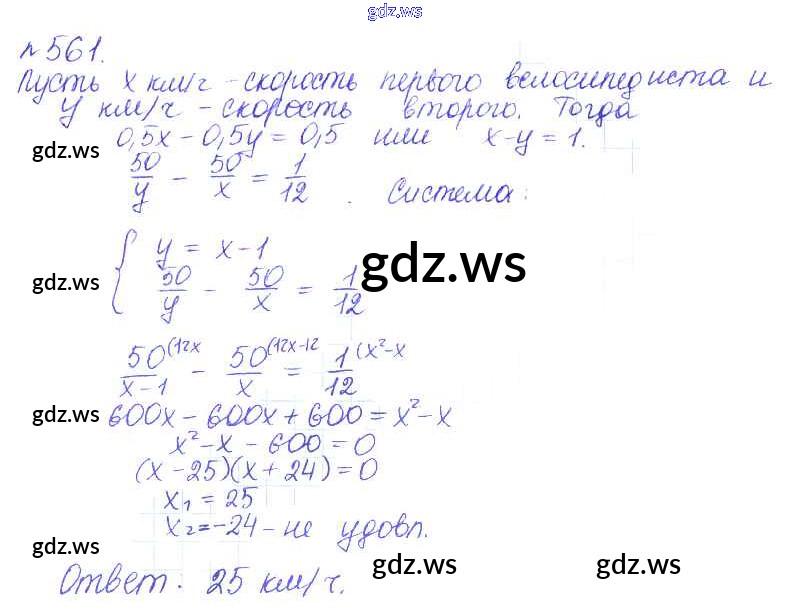 gdz.ws
№ 561.
Пусть x км/ч - скорость первого велосипедиста и
y км/ч - скорость второго. Тогда
0,5x - 0,5y = 0,5 или x-y = 1.
gdz.ws
50/y - 50/x = 1/12 . Система:
{ y = x-1
gdz.ws
50/y - 50/x = 1/12
gdz.ws
50^(12x / x-1 - 50^(12x-12 / x = 1^(x²-x / 12
gdz.ws
600x - 600x + 600 = x² - x
x² - x - 600 = 0
(x - 25)(x + 24) = 0
x₁ = 25
x₂ = -24 - не удовл.
gdz.ws
Ответ: 25 км/ч.
gdz.ws
gdz.ws